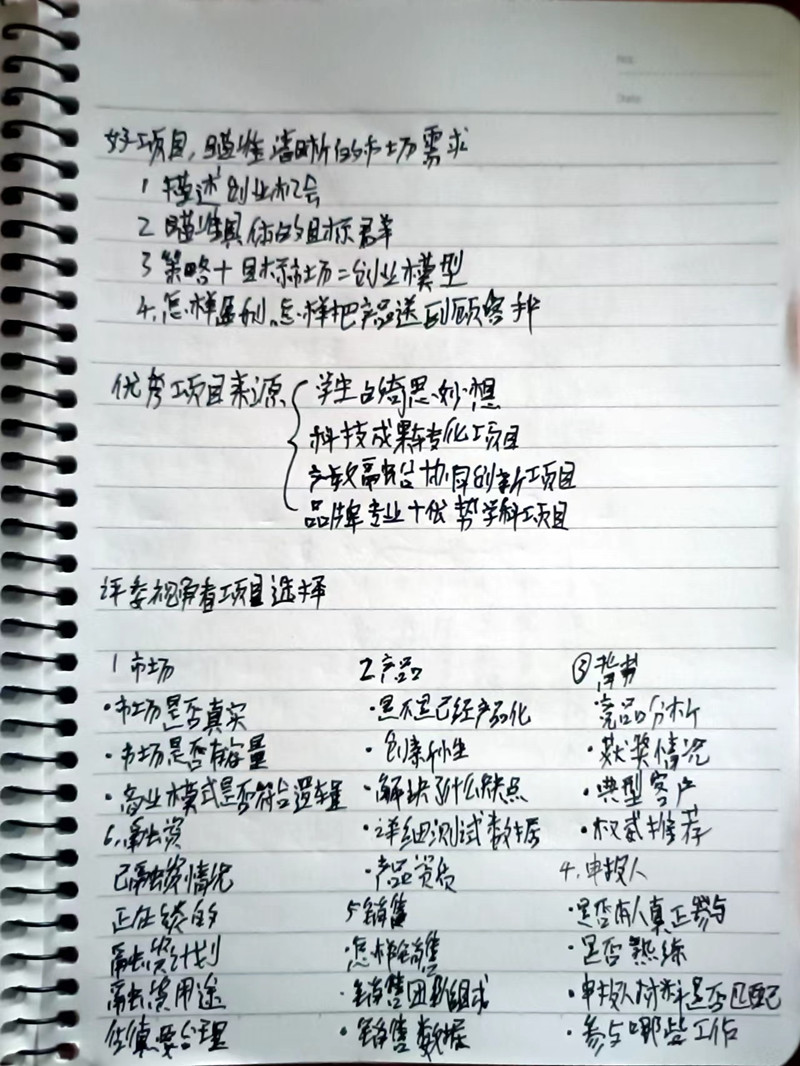 好项目,瞄准清晰的市场需求
1 描述创业机会
2 瞄准具体的目标君羊
3 策略+目标市场=创业模型
4.怎样盈利,怎样把产品送到顾客手
优秀项目来源
学生占奇思妙想
科技成果转化项目
产教融合协同创新项目
品牌专业+优势学科项目
评委视角看项目选择
1 市场 2.产品 ③背书
·市场是否真实 ·是不是已经产品化 ·竞品分析
·市场是否有容量 ·创新性 ·获奖情况
·商业模式是否符合逻辑 ·解决了什么缺点 ·典型客户
6.融资 ·详细测试数据 ·权威推荐
已融资情况 ·产品资质 4.申报人
正在谈的 5销售 ·是否有人真正参与
融资计划 ·怎样销售 ·是否熟练
融资用途 ·销售团队组成 ·申报人材料是否匹配
估值要合理 ·销售数据 ·参与哪些工作